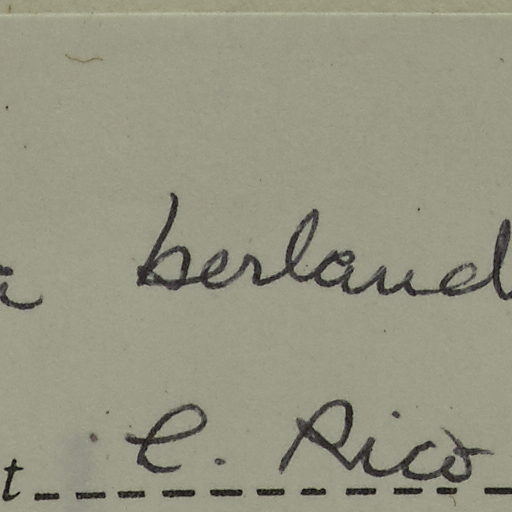 a berland
t C. Rico